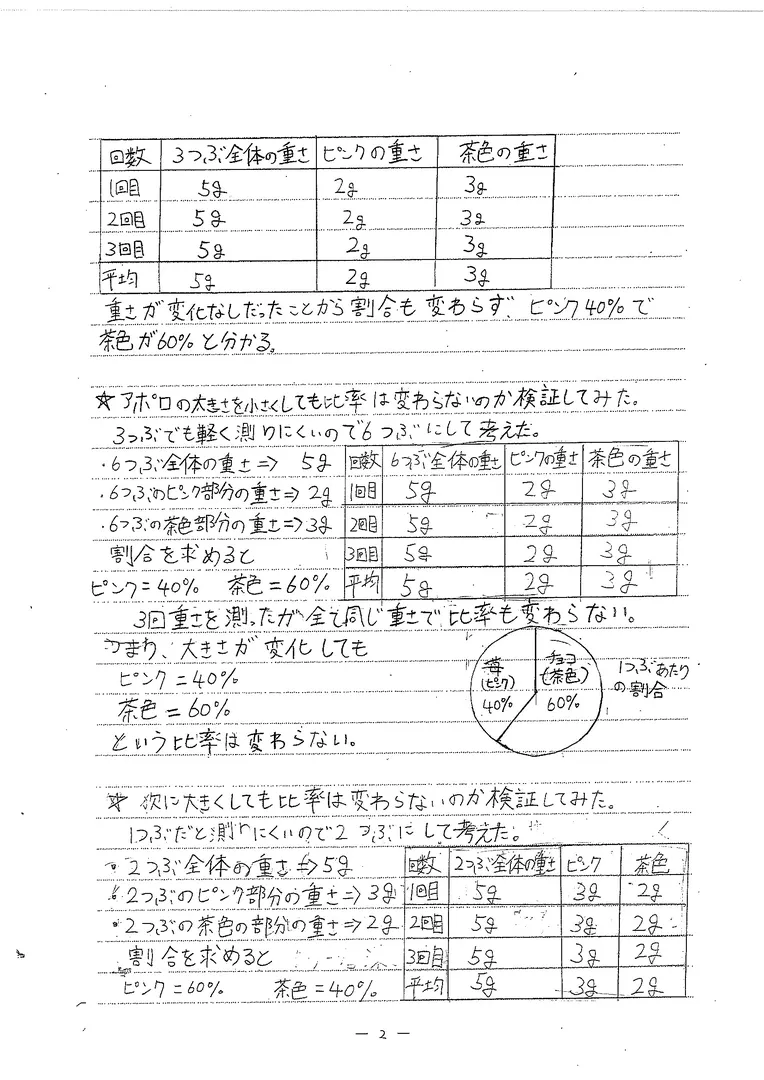 回数 3つぶ全体の重さ ピンクの重さ 茶色の重さ
1回目 5g 2g 3g
2回目 5g 2g 3g
3回目 5g 2g 3g
平均 5g 2g 3g
重さが変化なしだったことから割合も変わらず、ピンク40%で
茶色が60%と分かる。
☆アポロの大きさを小さくしても比率は変わらないのか検証してみた。
3つぶでも軽く測りにくいので6つぶにして考えた。
・6つぶ全体の重さ⇒ 5g
・6つぶのピンク部分の重さ⇒2g
・6つぶの茶色部分の重さ⇒3g
割合を求めると
ピンク=40% 茶色=60%
回数 6つぶ全体の重さ ピンクの重さ 茶色の重さ
1回目 5g 2g 3g
2回目 5g 2g 3g
3回目 5g 2g 3g
平均 5g 2g 3g
3回重さを測ったが全て同じ重さで比率も変わらない。
つまり、大きさが変化しても
ピンク=40%
茶色=60%
という比率は変わらない。
苺(ピンク) 40%
チョコ(茶色) 60%
1つぶあたり
の割合
☆ 次に大きくしても比率は変わらないのか検証してみた。
1つぶだと測りにくいので2つぶにして考えた。
・2つぶ全体の重さ⇒5g
・2つぶのピンク部分の重さ⇒3g
・2つぶの茶色の部分の重さ⇒2g
割合を求めると
ピンク=60% 茶色=40%
回数 2つぶ全体の重さ ピンク 茶色
1回目 5g 3g 2g
2回目 5g 3g 2g
3回目 5g 3g 2g
平均 5g 3g 2g
— 2 —